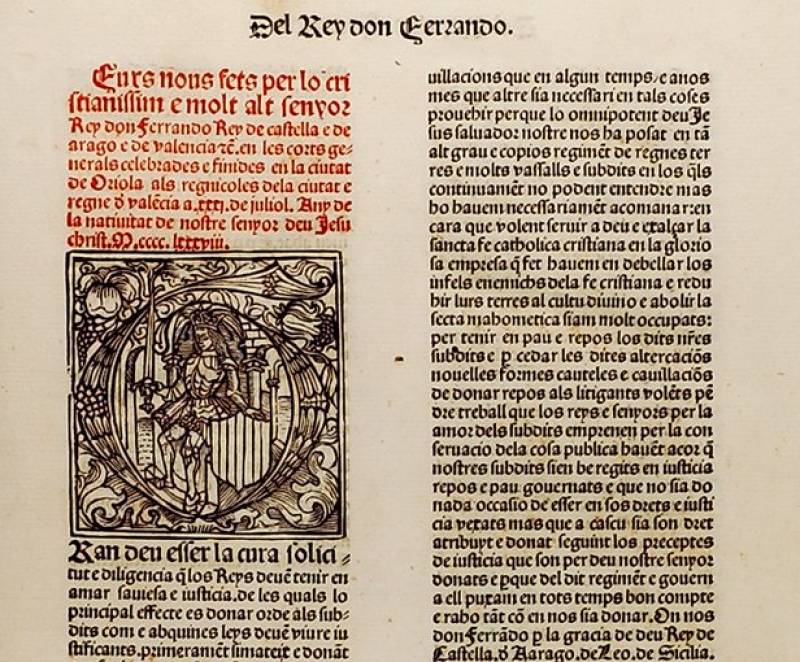 Del Rey don Ferrando.
Furs nous fets per lo cri
stianissim e molt alt senyor
Rey don Ferrando Rey de castella e de
arago e de valencia ⁊c̄. en les corts ge⸗
nerals celebrades e finides en la ciutat
de Oriola als regnicoles dela ciutat e
regne d̉ valēcia a. xxxj. de juliol. Any de
la natiuitat de nostre senyor deu Jesu
christ. M. cccc. lxxxviii.
Ran deu esser la cura solici⸗
tut e diligencia q̄ los Reys deuē tenir en
amar sauiesa e iusticia. de les quals lo
principal effecte es donar orde als sub⸗
dits com e ab quines leys deuē viure iu
stificants. primeramēt simateix e donāt
uillacions que en algun temps / e anos
mes que altre sia necessari en tals coses
prouehir perque lo omnipotent deu Je
sus saluador nostre nos ha posat en tā
alt grau e copios regimēt de regnes ter
res e molts vassalls e subdits en los q̄ls
continuamēt no podent entendre mas
ho hauem necessariamēt acomanar: en
cara que volent seruir a deu e exalçar la
sancta fe catholica cristiana en la glorio
sa empresa q̄ fet hauem en debellar los
infels enemichs dela fe cristiana e redu
hir lurs terres al cultu diuino e abolir la
secta mahometica siam molt occupats:
per tenir en pau e repos los dits nr̄es
subdits e ꝑ cedar les dites altercaciōs
nouelles formes cauteles e cauillaciōs
de donar repos als litigants volēts pē
dre treball que los reys e senyors per la
amor dels subdits emprenen per la con
seruacio dela cosa publica hauēt acor q̄
nostres subdits sien be regits en iusticia
repos e pau gouernats e que no sia do
nada occasio de esser en sos drets e iusti
cia vexats mas que a cascu sia son dret
atribuyt e donat seguint los preceptes
de iusticia que son per deu nostre senyor
donats e ꝑque del dit regimēt e gouern
a ell puxam en tots temps bon compte
e raho tāt cō en nos sia donar. On nos
don Ferrādo ꝑ la gracia de deu Rey de
Castella. d̉ Aarago. de Leo. de Sicilia.